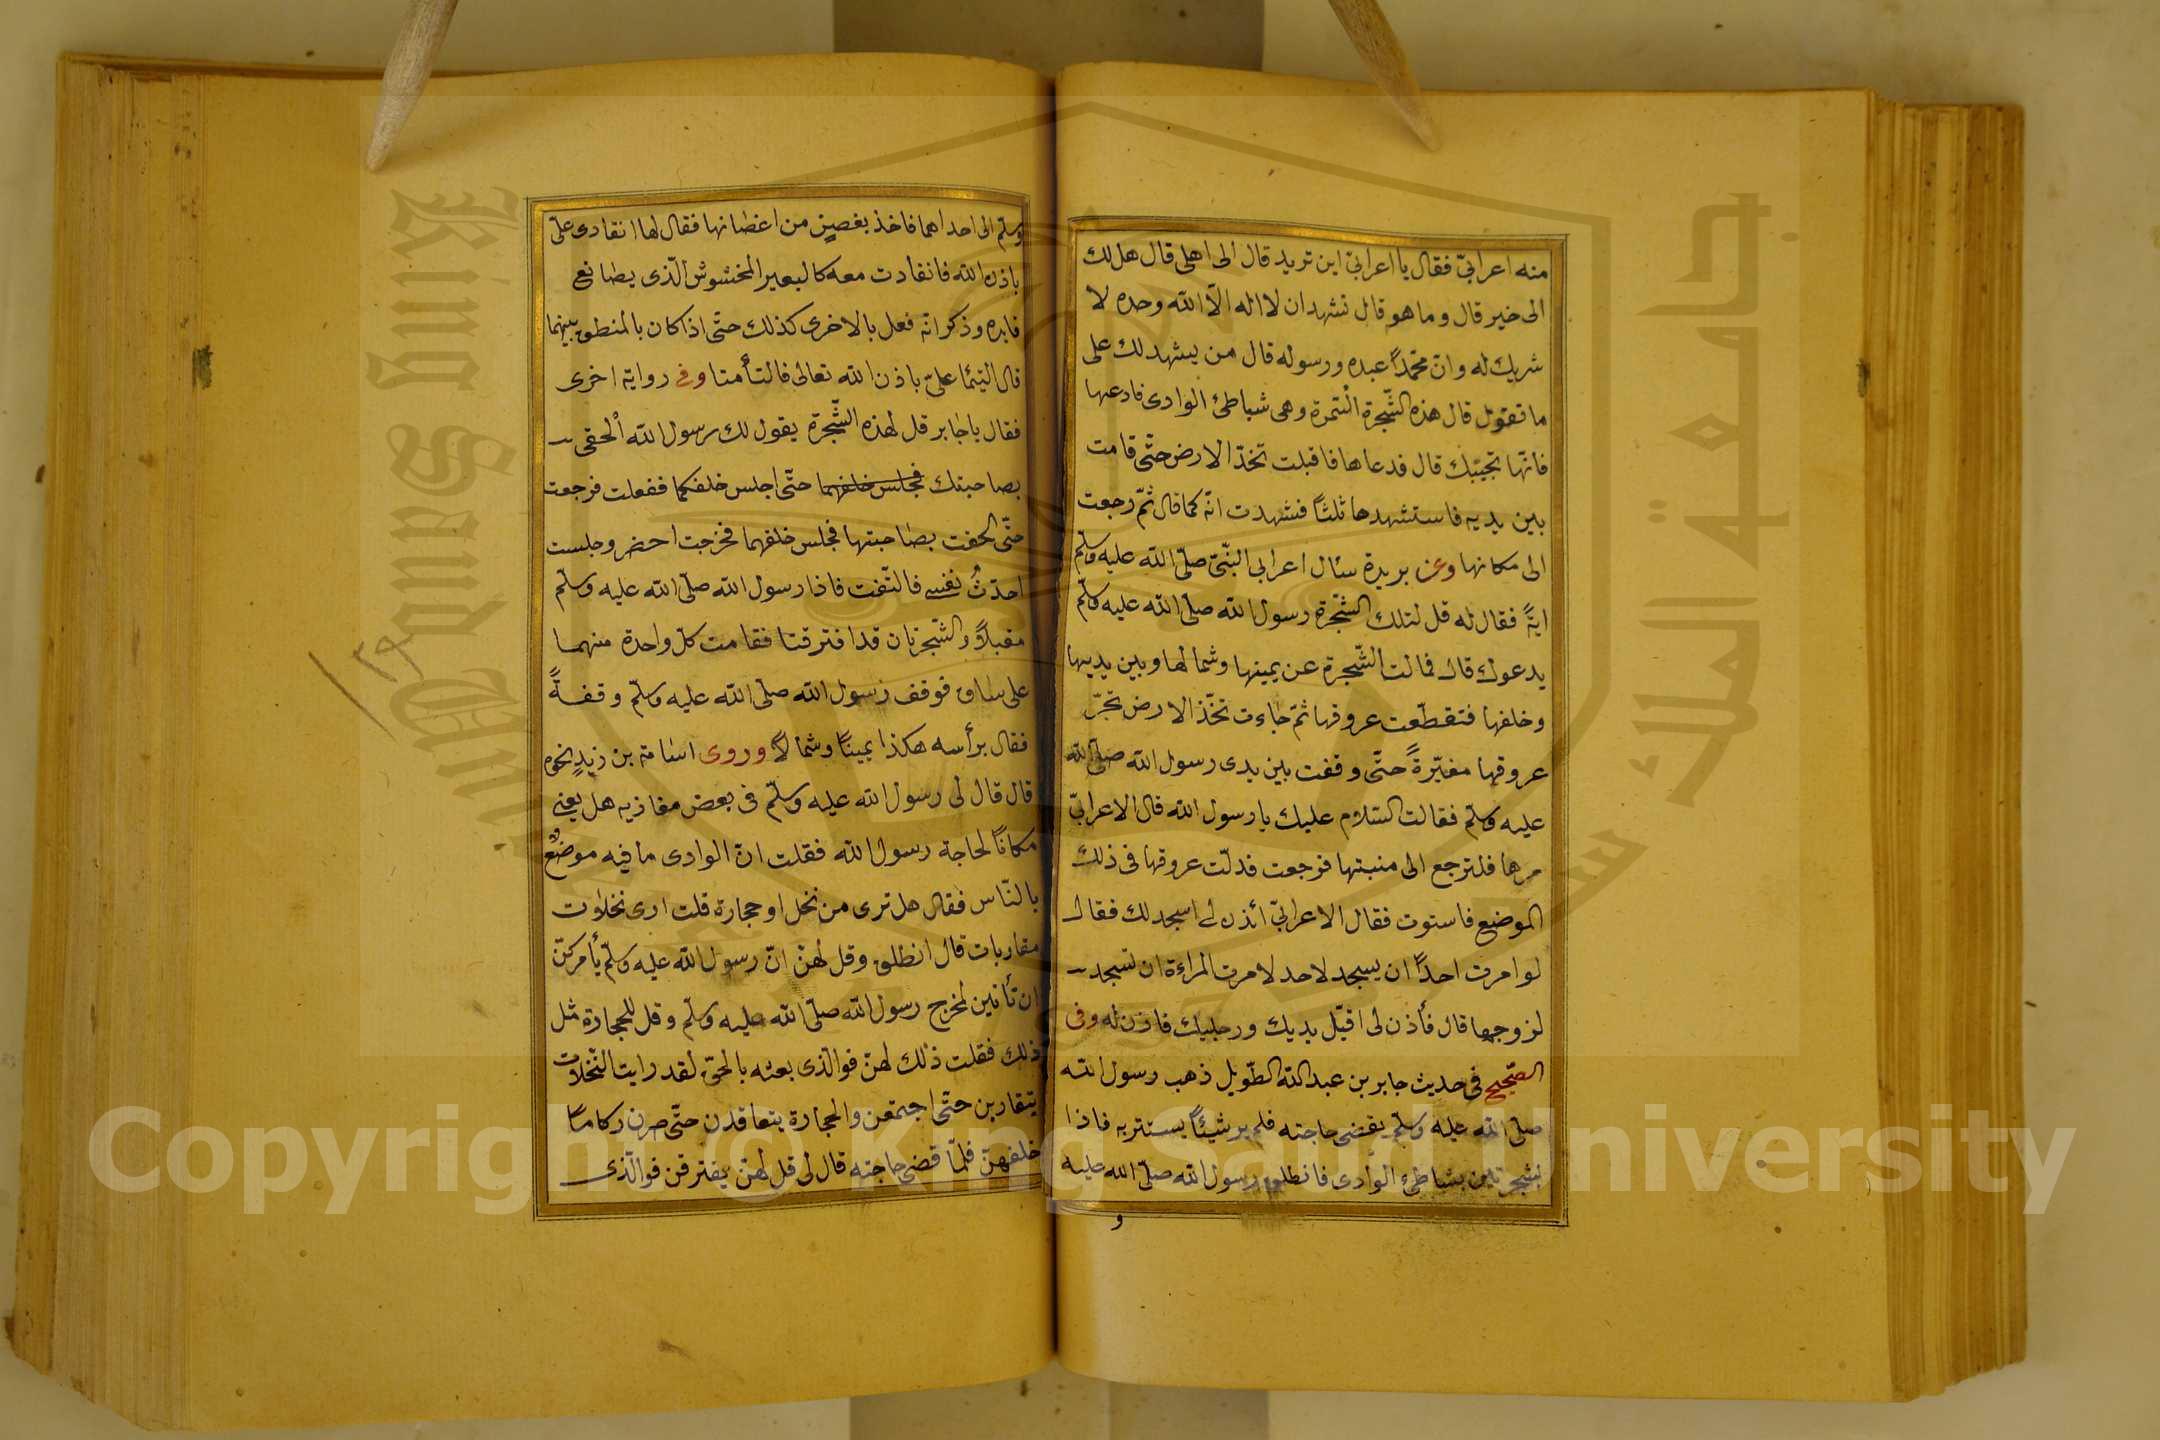 منه اعرابىّ فقال يا اعرابىّ اين تريد قال الى اهلى قال هل لك
الى خير قال وما هو قال تشهد ان لا اله الّا الله وحده لا
شريك له وانّ محمّداً عبده ورسوله قال من يشهد لك على
ما تقول قال هذه الشّجرة السّمرة وهى شباطئ الوادى فادعها
فانّها تجيبك قال فدعاها فاقبلت تخدّ الارض حتّى قامت
بين يديه فاستشهدها ثلثاً فشهدت انّه كما قال ثمّ رجعت
الى مكانها وعن بريدة سئال اعرابى النّبىّ صلّى الله عليه وسلّم
ايةً فقال له قل لتلك الشّجرة رسول الله صلّى الله عليه وسلّم
يدعوك قال فمالت الشّجرة عن يمينها وشمالها وبين يديها
وخلفها فتقطّعت عروقها ثمّ جاءت تخدّ الارض تجرّ
عروقها مغبّرةً حتّى وقفت بين يدى رسول الله صلّى الله
عليه وسلّم فقالت السّلام عليك يا رسول الله قال الاعرابىّ
مرها فلترجع الى منبتها فرجعت فدلّت عروقها فى ذلك
الموضع فاستوت فقال الاعرابىّ ائذن لى اسجد لك فقال
لو امرت احداً ان يسجد لاحد لامرت المراءة ان تسجد
لزوجها قال فأذن لى اقبّل يديك ورجليك فاذن له وفى
الصّحيح فى حديث جابر بن عبد الله الطّويل ذهب رسول الله
صلّى الله عليه وسلّم يقضى حاجته فلم ير شيئاً يستتر به فاذا
بشجرتين بشاطئ الوادى فانطلق رسول الله صلّى الله عليه
و
وسلّم الى احداهما فاخذ بغصنٍ من اغصانها فقال لها انقادى علىّ
باذن الله فانقادت معه كالبعير المخشوش الّذى يصانع
قايده وذكر انّه فعل بالاخرى كذلك حتّى اذا كان بالمنطق بينهما
قال التئما علىّ باذن الله تعالى فالتأمتا وفى رواية اخرى
فقال يا جابر قل لهذه الشّجرة يقول لك رسول الله الحقى
بصاحبتك فجلس خلفهما حتّى اجلس خلفكما ففعلت فرجعت
حتّى الحقت بصاحبتها فجلس خلفهما فخرجت احضر وجلست
احدّثُ نفسى فالتّفت فاذا رسول الله صلّى الله عليه وسلّم
مقبلاً والشّجرتان قد افترقتا فقامت كلّ واحدة منهما
على ساق فوقف رسول الله صلّى الله عليه وسلّم وقفةً
فقال برأسه هكذا يميناً وشمالاً وروى اسامة بن زيدٍ نحوه
قال قال لى رسول الله عليه وسلّم فى بعض مغازيه هل يعنى
مكاناً لحاجة رسول الله فقلت انّ الوادى ما فيه موضعٌ
بالنّاس فقال هل ترى من نخل او حجارة قلت ارى نخلات
مقاربات قال انطلق وقل لهنّ انّ رسول الله عليه وسلّم يأمركنّ
ان تأتين لمخرج رسول الله صلّى الله عليه وسلّم وقل للحجارة مثل
ذلك فقلت ذلك لهنّ فوالّذى بعثه بالحقّ لقد رايت النّخلات
يتقاربن حتّى اجتمعن والحجارة يتعاقدن حتّى صرن ركاماً
خلفهنّ فلمّا قضى حاجته قال لى قل لهنّ يفترقن فوالّذى
١٣٩
King Saud University
جامعة الملك سعود
Copyright © King Saud University